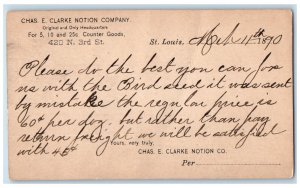 CHAS. E. CLARKE NOTION COMPANY.
Original and Only Headquarters
For 5, 10 and 25c. Counter Goods,
420 N. 3rd St.
St. Louis, Mch 11th 1890
Please do the best you can for
us with the Bird seed it was sent
by mistake the regular price is
60¢ per doz. but rather than pay
return freight we will be satisfied
with 45¢
Yours, very truly,
CHAS. E. CLARKE NOTION CO.
Per